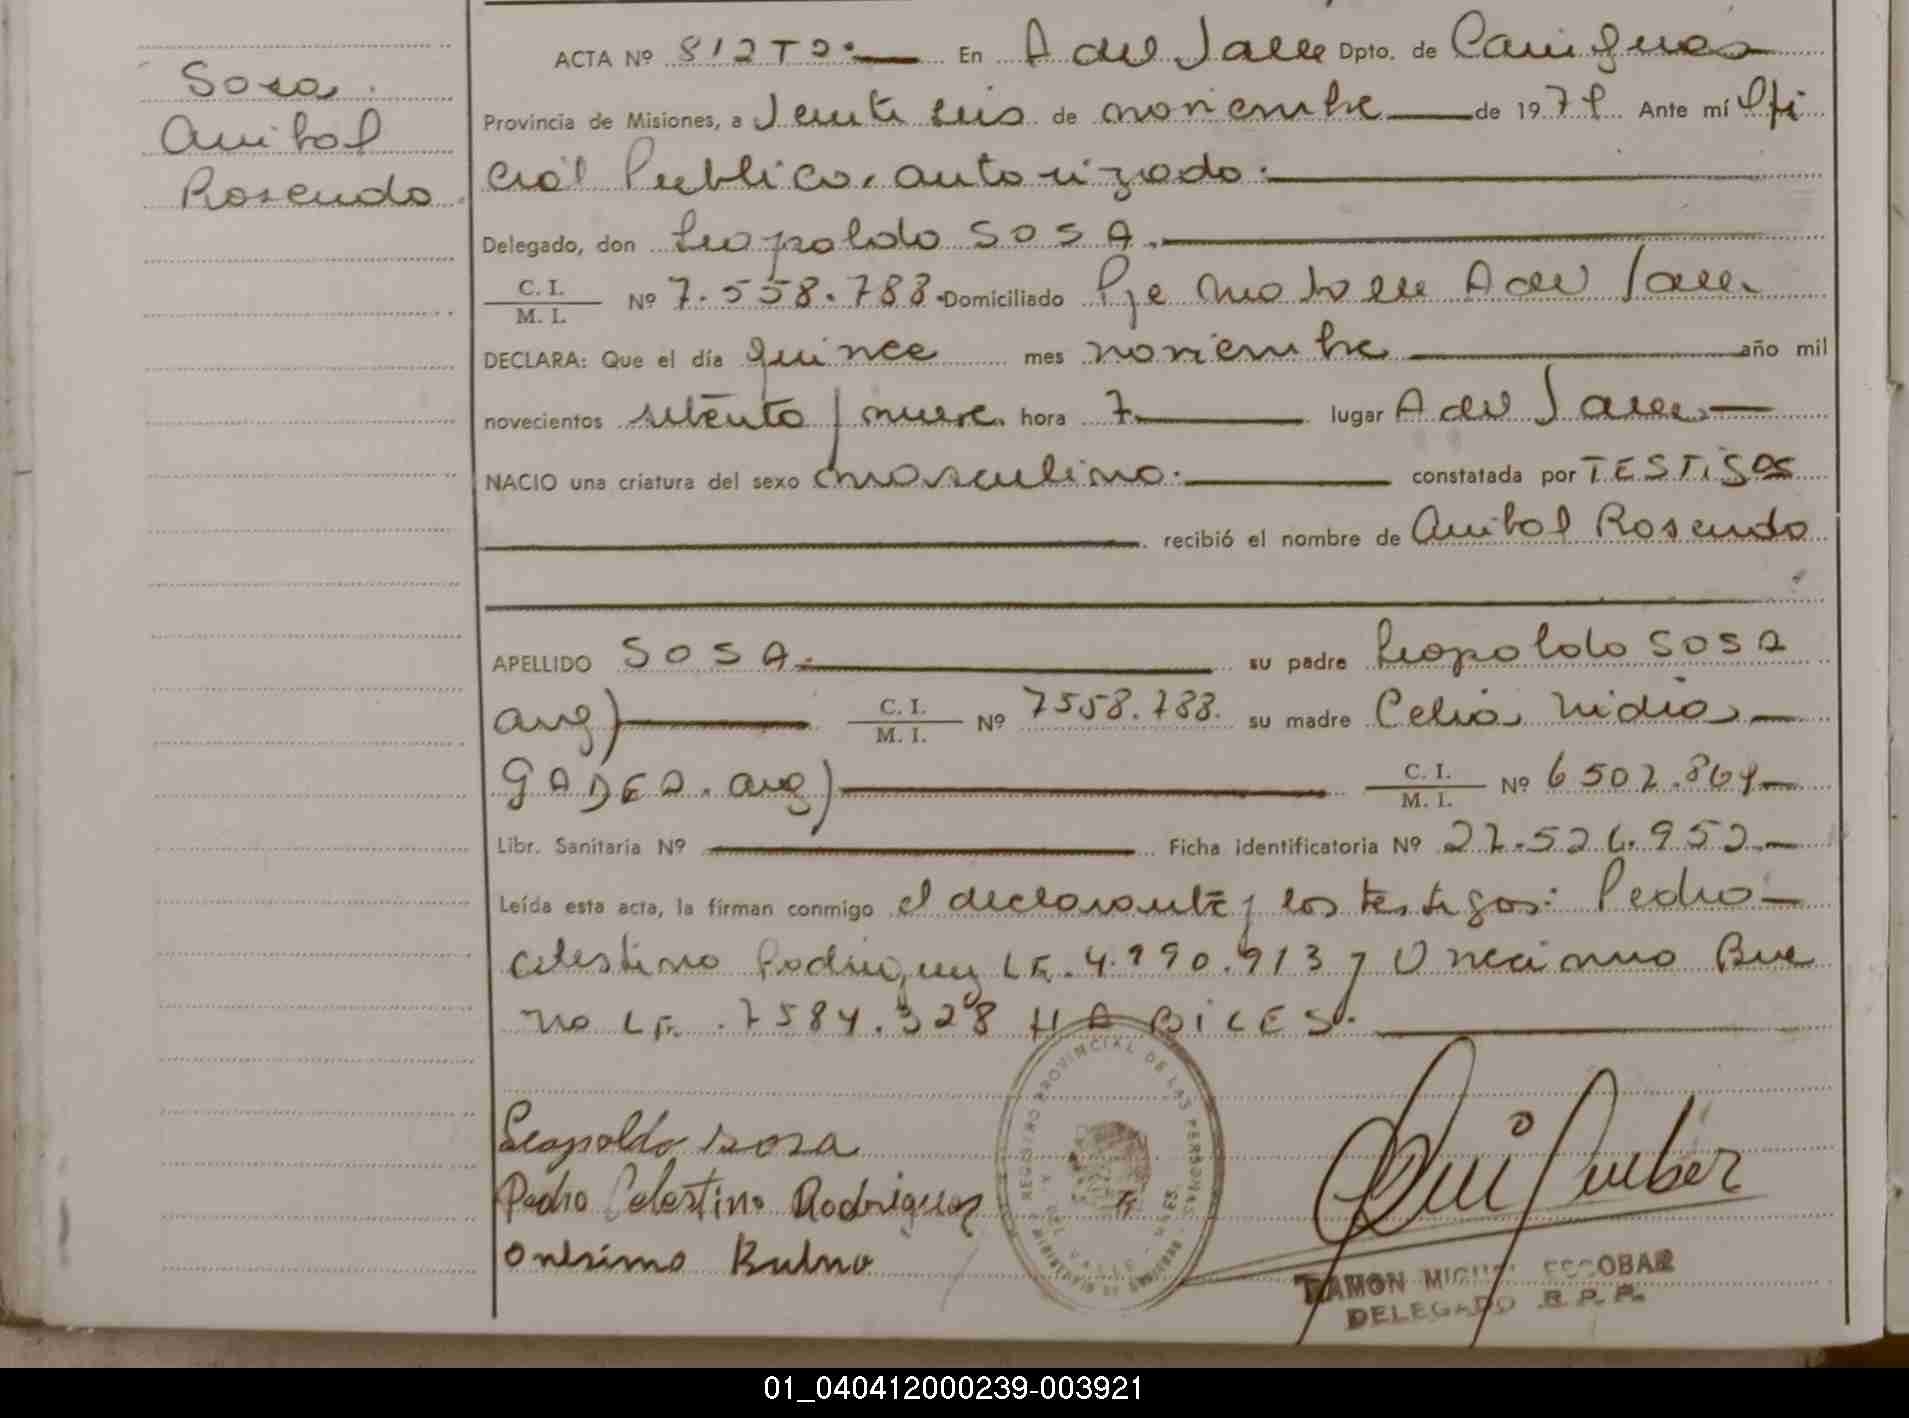 Sosa
Anibal
Rosendo
ACTA Nº 812 Tº 2. En A del Valle Dpto. de Cainguas
Provincia de Misiones, a Veinti seis de noviembre de 1979 Ante mí Ofi
cial Publico, autorizado.
Delegado, don Leopoldo SOSA.
C. I. / M. I. Nº 7.558.788. Domiciliado A del Valle
DECLARA: Que el día quince mes noviembre año mil
novecientos setenta y nueve. hora 7. lugar A del Valle.
NACIO una criatura del sexo masculino. constatada por TESTIGOS
recibió el nombre de Anibal Rosendo
APELLIDO SOSA. su padre Leopoldo SOSA
arg) C. I. / M. I. Nº 7558.788. su madre Celia Nidia
GADEA. arg) C. I. / M. I. Nº 6502.864
Libr. Sanitaria Nº Ficha identificatoria Nº 27.526.952.
Leída esta acta, la firman conmigo el declarante y los testigos: Pedro
Celestino Rodriguez LE. 4.990.913 y Onecimo Bue
no LE. 7584.328 HABILES.
REGISTRO PROVINCIAL DE LAS PERSONAS
DEL VALLE
Leopoldo sosa
Pedro Celestino Rodriguez
onesimo Bueno
RAMON MIGUEL ESCOBAR
DELEGADO R. P. P.